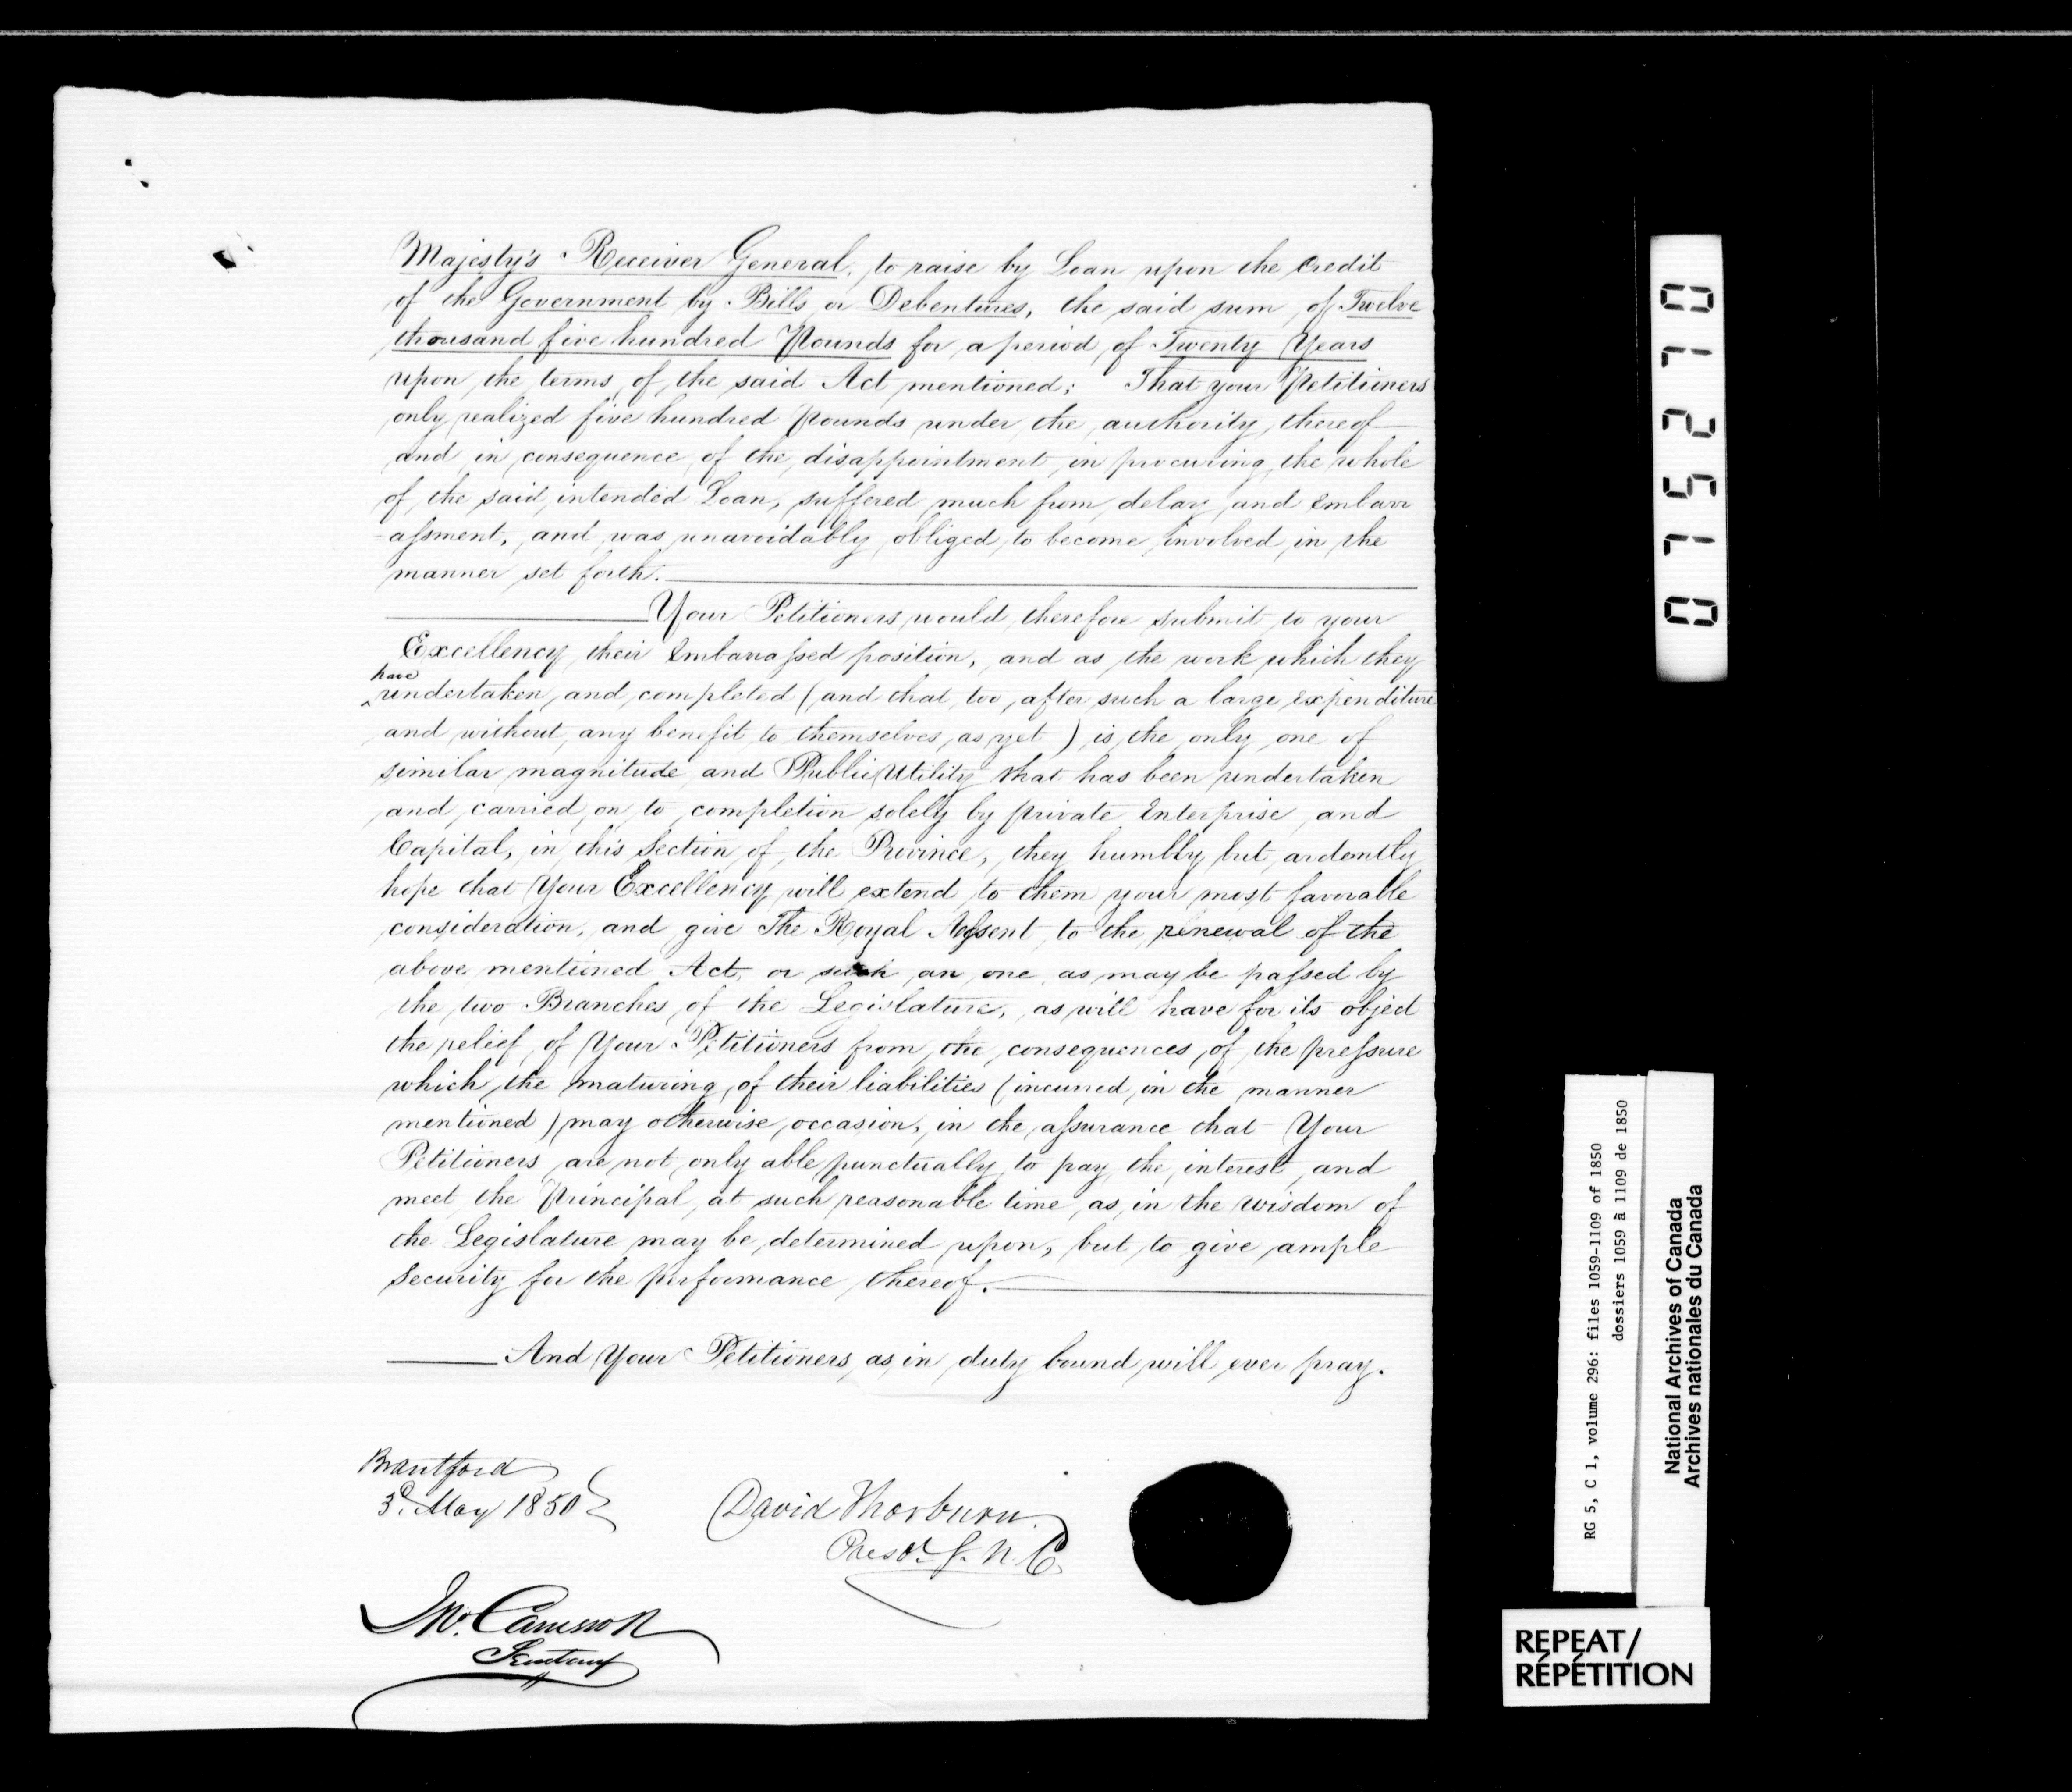 Majesty's Receiver General, to raise by Loan upon the Credit
of the Government by Bills or Debentures, the said sum of Twelve
thousand five hundred Pounds for a period of Twenty Years
upon the terms of the said Act mentioned; That your Petitioners
only realized five hundred Pounds under the authority thereof
and in consequence of the disappointment in procuring the whole
of the said intended Loan, suffered much from delay and Embarr
=assment, and was unavoidably obliged to become involved in the
manner set forth.
Your Petitioners would therefore submit to your
Excellency their Embarrassed position, and as the work which they
have
^undertaken and completed (and that too after such a large expenditure
and without any benefit to themselves as yet) is the only one of
similar magnitude and Public Utility that has been undertaken
and carried on to completion solely by private Enterprise and
Capital, in this Section of the Province, they humbly but ardently
hope that Your Excellency will extend to them your most favorable
consideration, and give The Royal Assent to the renewal of the
above mentioned Act, or such an one as may be passed by
the two Branches of the Legislature, as will have for its object
the relief of Your Petitioners from the consequences of the pressure
which the maturing of their liabilities (incurred in the manner
mentioned) may otherwise occasion, in the assurance that Your
Petitioners are not only able punctually to pay the interest and
meet the Principal at such reasonable time as in the wisdom of
the Legislature may be determined upon, but to give ample
Security for the performance thereof.
And Your Petitioners as in duty bound will ever pray.
Brantford
3d. May 1850
David Thorburn
Presdt. G. N. C.
Jno. Cameron
Secretary
0752710
RG 5, C 1, volume 296: files 1059-1109 of 1850
dossiers 1059 à 1109 de 1850
National Archives of Canada
Archives nationales du Canada
REPEAT/
RÉPÉTITION